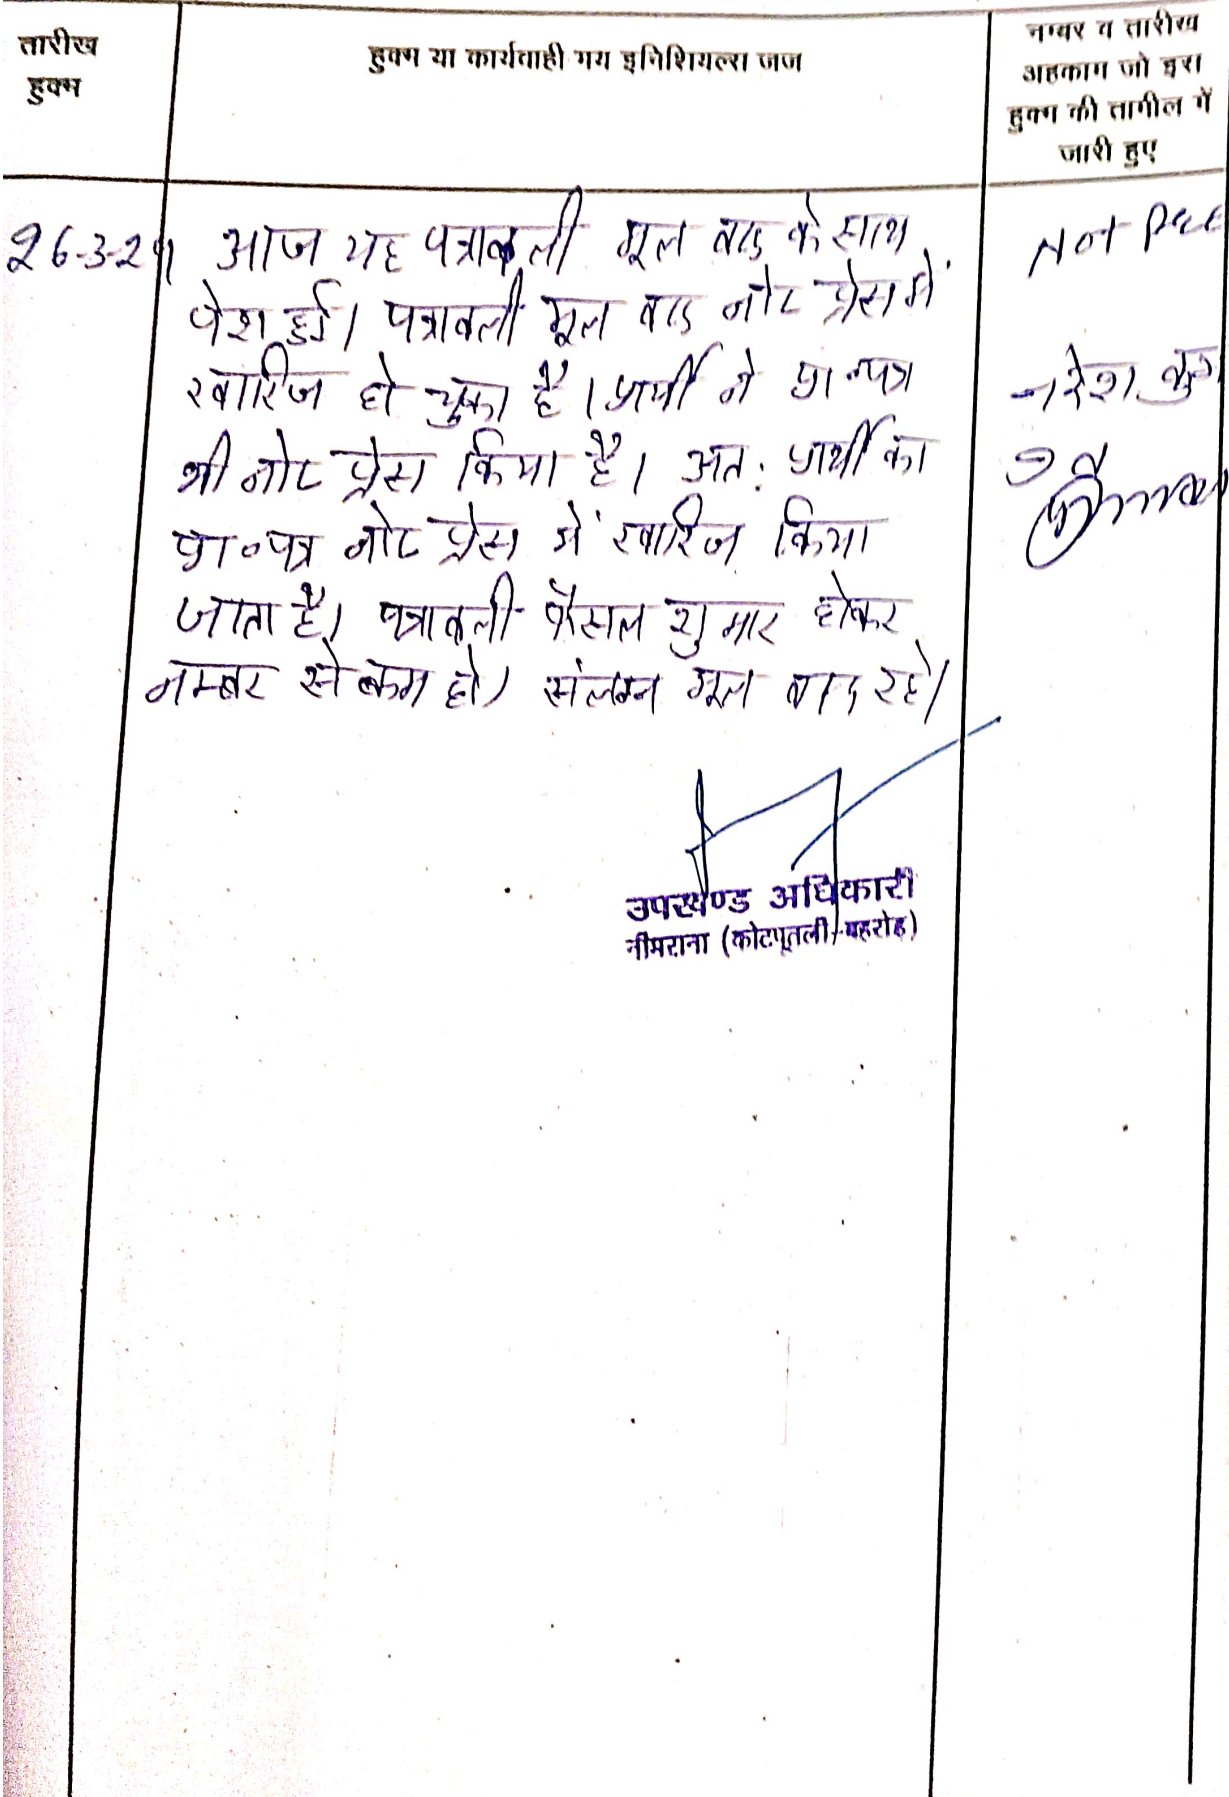 तारीख
हुक्म
हुक्म या कार्यवाही मय इनिशियल्स जज
नम्बर व तारीख
अहकाम जो इस
हुक्म की तामील में
जारी हुए
26-3-24 आज यह पत्रावली मूल वाद के साथ
पेश हुई। पत्रावली मूल वाद नोट प्रेस में
खारिज हो चुका है। प्रार्थी ने प्रा०पत्र
भी नोट प्रेस किया है। अत: प्रार्थी का
प्रा०पत्र नोट प्रेस में खारिज किया
जाता है। पत्रावली फैसल शुमार होकर
नम्बर से कम हो। संलग्न मूल वाद रहे।
Not
नरेश
उपखण्ड अधिकारी
नीमराना (कोटपूतली-बहरोड़)